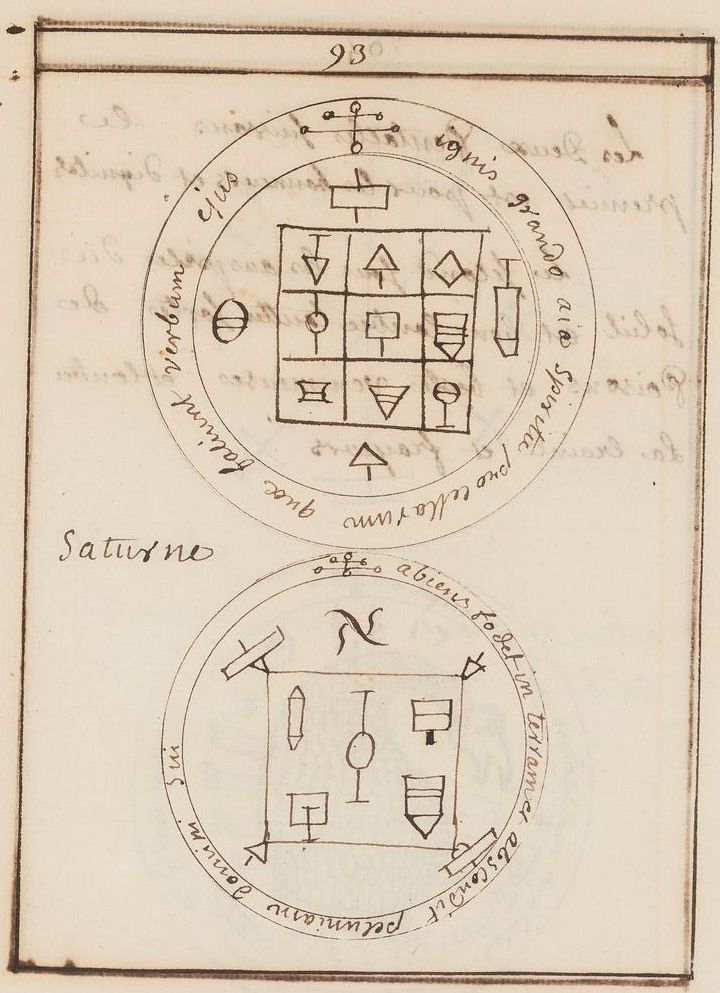 93
ignis grando aia Spiritu procellarum quæ faciunt verbum ejus
Saturne
abiens fodet in terram et abscondit pecuniam domini Sui